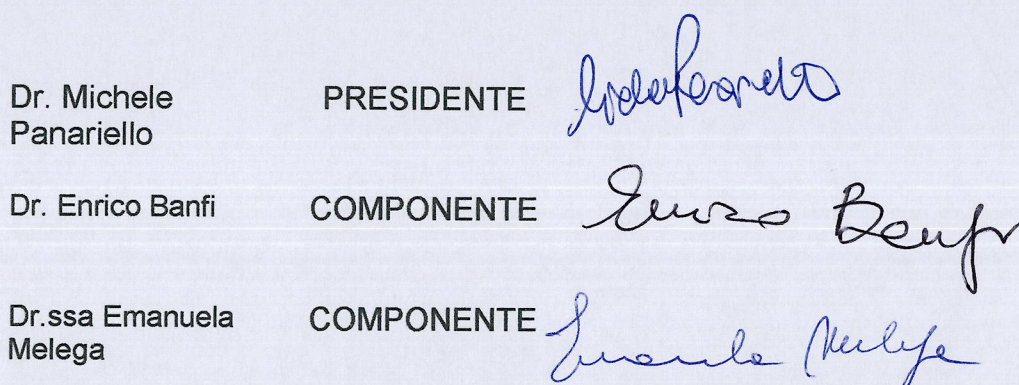 Dr. Michele
Panariello
PRESIDENTE
Dr. Enrico Banfi
COMPONENTE
Enrico Banfi
Dr.ssa Emanuela
Melega
COMPONENTE
Emanuela Melega